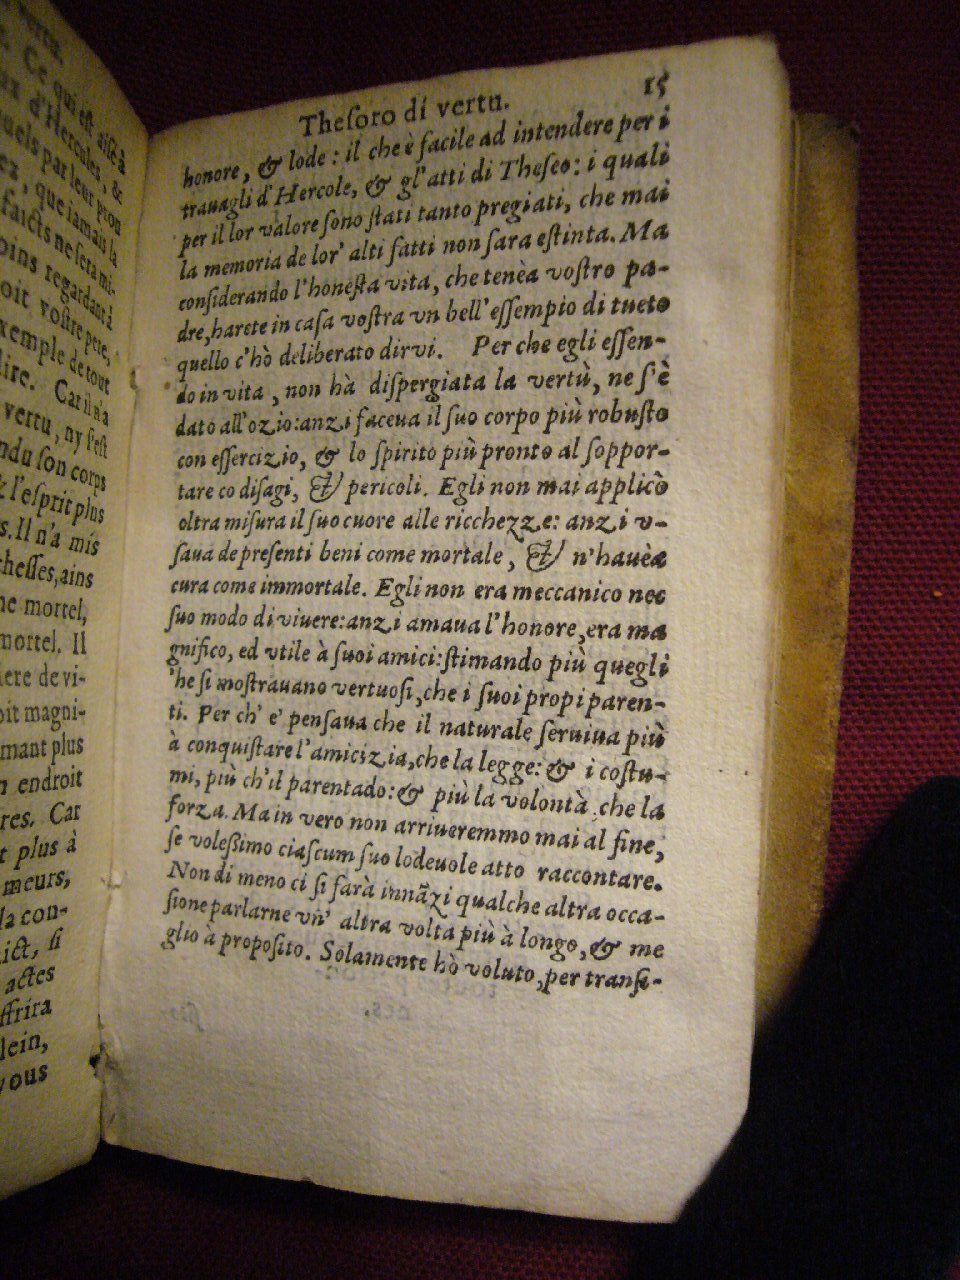 vertu.
Ce qui est aisé à
d'Hercules, &
par leur
que iamais la
faicts ne sera
regardant à
vostre pere,
exemple de tout
dire. Car il n'a
vertu, ny s'est
son corps
& l'esprit plus
Il n'a mis
ains
mortel,
Il
de vi-
magni-
plus
endroit
Car
plus à
meurs,
la con-
si
actes
vous
Theſoro di vertu. 15
honore, & lode : il che è facile ad intendere per i
trauagli d'Hercole, & gl'atti di Theſeo: i quali
per il lor valore ſono ſtati tanto pregiati, che mai
la memoria de lor' alti fatti non ſara eſtinta. Ma
conſiderando l'honeſta vita, che tenèa voſtro pa-
dre, harete in caſa voſtra vn bell'eſſempio di tueto
quello c'hò deliberato dirvi. Per che egli eſſen-
do in vita, non hà diſpergiata la vertù, ne s'è
dato all'ozio: anzi faceua il ſuo corpo più robuſto
con eſſercizio, & lo ſpirito più pronto al ſoppor-
tare co diſagi, & pericoli. Egli non mai applicò
oltra miſura il ſuo cuore alle ricchezze: anzi v-
ſaua de preſenti beni come mortale, & n'hauèa
cura come immortale. Egli non era meccanico nec
ſuo modo di viuere: anzi amaua l'honore, era ma
gnifico, ed vtile à ſuoi amici: ſtimando più quegli
'he ſi moſtrauano vertuoſi, che i ſuoi propi paren-
ti. Per ch' e' penſaua che il naturale ſeruiua più
à conquiſtare l'amicizia, che la legge: & i coſtu-
mi, più ch'il parentado: & più la volontà, che la
forza. Ma in vero non arriueremmo mai al fine,
ſe voleßimo ciaſcum ſuo lodeuole atto raccontare.
Non di meno ci ſi farà innãzi qualche altra occa-
ſione parlarne vn' altra volta più à longo, & me
glio à propoſito. Solamente hò voluto, per tranſi-